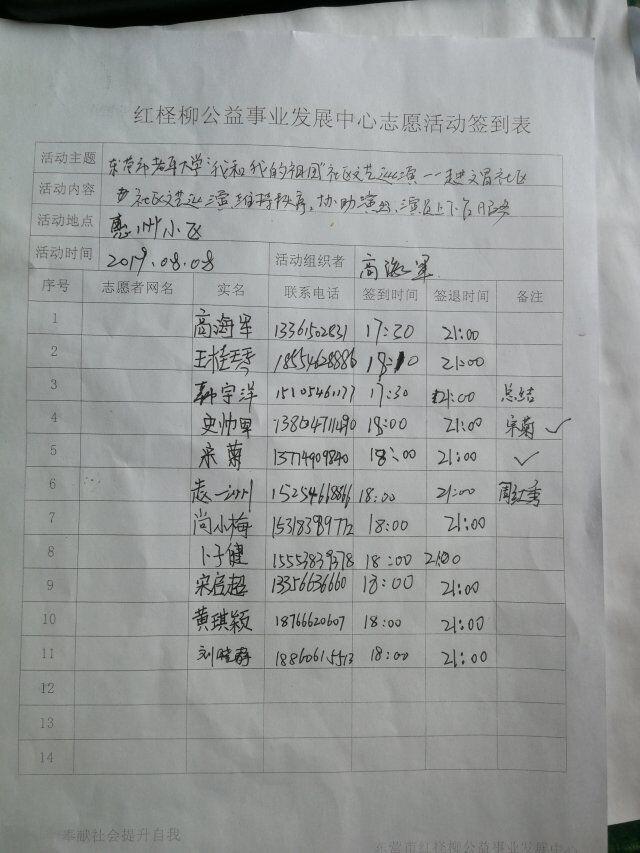 红柽柳公益事业发展中心志愿活动签到表
活动主题 东营市老年大学"我和我的祖国"社区文艺巡演——走进文昌社区
活动内容 社区文艺巡演维持秩序、协助演出、演员上下台服务
活动地点 惠州小区
活动时间 2019.08.08 活动组织者 高海军
序号 志愿者网名 实名 联系电话 签到时间 签退时间 备注
1 高海军 13361502831 17:30 21:00
2 王桂琴 18554628886 18:10 21:00
3 韩宇洋 15105461177 17:30 21:00 总结
4 史帅甲 13864711490 18:00 21:00 宋菊 ✓
5 宋菊 13714909840 18:00 21:00 ✓
6 15254668866 18:00 21:00 周红秀
7 尚小梅 15318389772 18:00 21:00
8 卜子健 15553839378 18:00 21:00
9 宋启超 13356636660 18:00 21:00
10 黄琪颖 18766620607 18:00 21:00
11 刘晓静 18860615513 18:00 21:00
12
13
14
奉献社会提升自我 东营市红柽柳公益事业发展中心